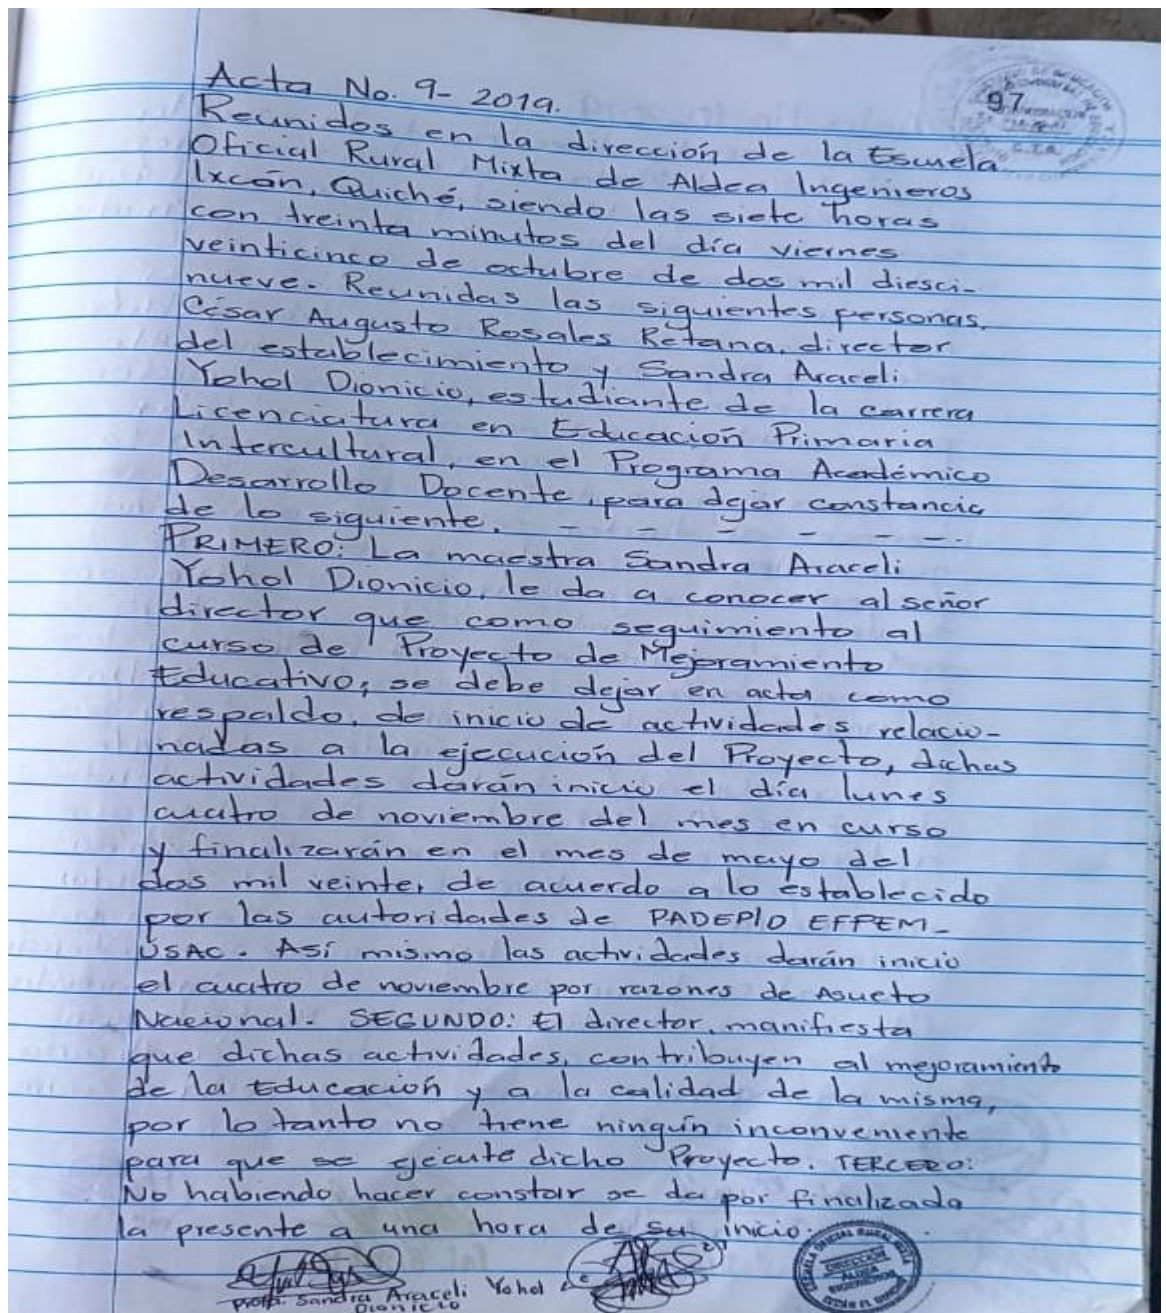 Acta No. 9- 2019.
97
Reunidos en la dirección de la Escuela
Oficial Rural Mixta de Aldea Ingenieros
Ixcán, Quiché, siendo las siete horas
con treinta minutos del día viernes
veinticinco de octubre de dos mil diesci-
nueve. Reunidas las siguientes personas.
César Augusto Rosales Retana, director
del establecimiento y Sandra Araceli
Yohol Dionicio, estudiante de la carrera
Licenciatura en Educación Primaria
Intercultural, en el Programa Académico
Desarrollo Docente, para dejar constancia
de lo siguiente. - - - - - -.
PRIMERO: La maestra Sandra Araceli
Yohol Dionicio, le da a conocer al señor
director que como seguimiento al
curso de Proyecto de Mejoramiento
Educativo, se debe dejar en acta como
respaldo, de inicio de actividades relacio-
nadas a la ejecución del Proyecto, dichas
actividades darán inicio el día lunes
cuatro de noviembre del mes en curso
y finalizarán en el mes de mayo del
dos mil veinte, de acuerdo a lo establecido
por las autoridades de PADEP/D EFPEM-
USAC. Así mismo las actividades darán inicio
el cuatro de noviembre por razones de Asueto
Nacional. SEGUNDO: El director, manifiesta
que dichas actividades, contribuyen al mejoramiento
de la Educación y a la calidad de la misma,
por lo tanto no tiene ningún inconveniente
para que se ejecute dicho Proyecto. TERCERO:
No habiendo hacer constar se da por finalizada
la presente a una hora de su inicio.
Profa. Sandra Araceli Yohol
Dionicio
ESCUELA OFICIAL RURAL MIXTA
DIRECCIÓN
ALDEA
INGENIEROS